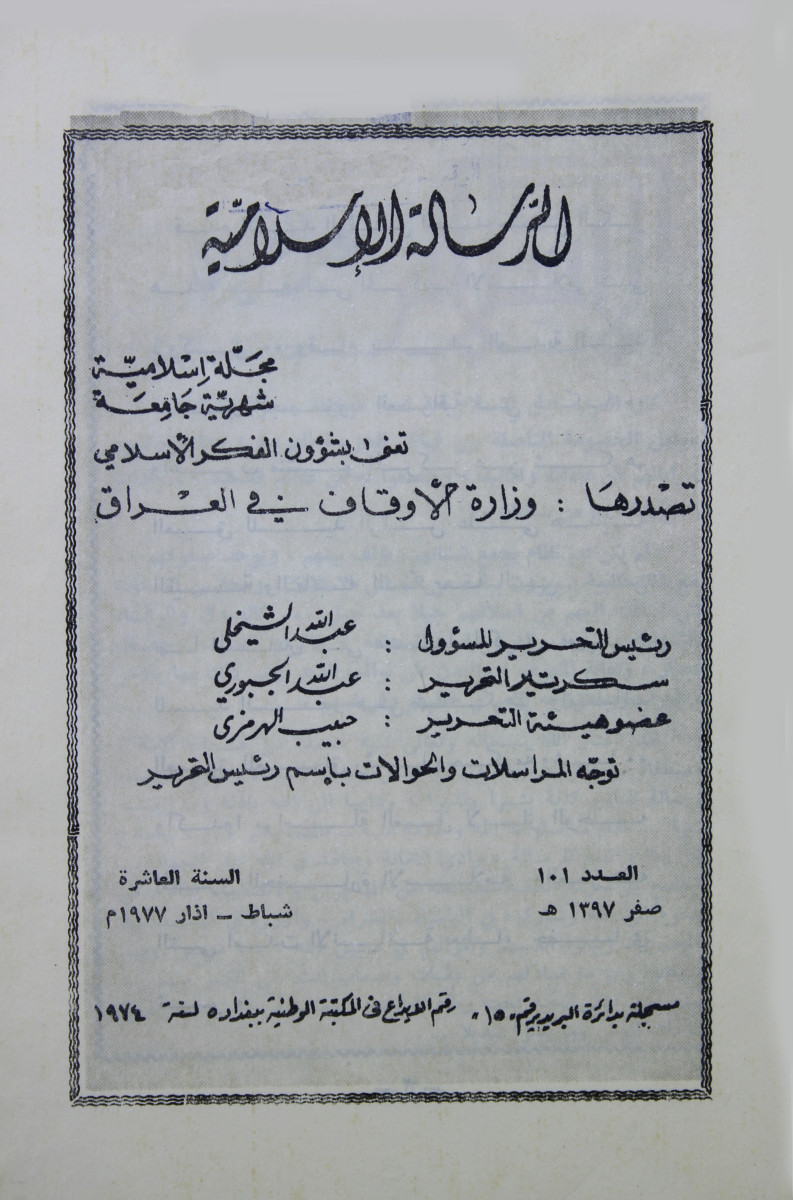 الرسالة الإسلامية
مجلّة إسلاميّة
شهريّة جَامِعَة
تعنى بشؤون الفكر الأسلامي
تصْدرهَا : وزارة الأوقاف في العـراق
رئيس التحرير المسؤول : عبدالله الشيخلي
سكرتير التحرير : عبدالله الجبوري
عضو هيئة التحرير : حبيب الهرمزي
توجّه المراسلات والحوالات بإسم رئيس التحرير
العدد ١٠١ السنة العاشرة
صفر ١٣٩٧ هـ شباط ــ اذار ١٩٧٧م
مسجلة بدائرة البريد برقم ١٥٠ رقم الايداع في المكتبة الوطنية ببغداد ٥ لسنة ١٩٧٤